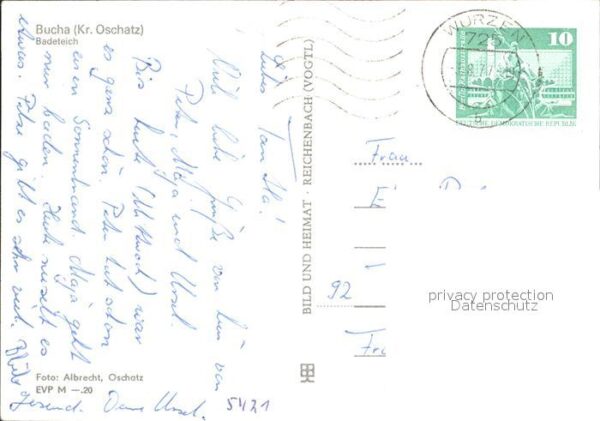 Bucha (Kr. Oschatz)
Badeteich
Liebe
Viele liebe Grüße von hier von
Peter, Maja und Ursel.
Bis heute (Mittwoch) war
es ganz schön. Peter hat schon
einen Sonnenbrand. Maja geht
nur baden. Heute nieselt es
etwas. Peter gibt es sehr viel. Bleibt
gesund. Deine Ursel.
Foto: Albrecht, Oschatz
EVP M —.20
5421
BILD UND HEIMAT · REICHENBACH (VOGTL)
WURZEN
725
10
DEUTSCHE DEMOKRATISCHE REPUBLIK
Frau
92
privacy protection
Datenschutz